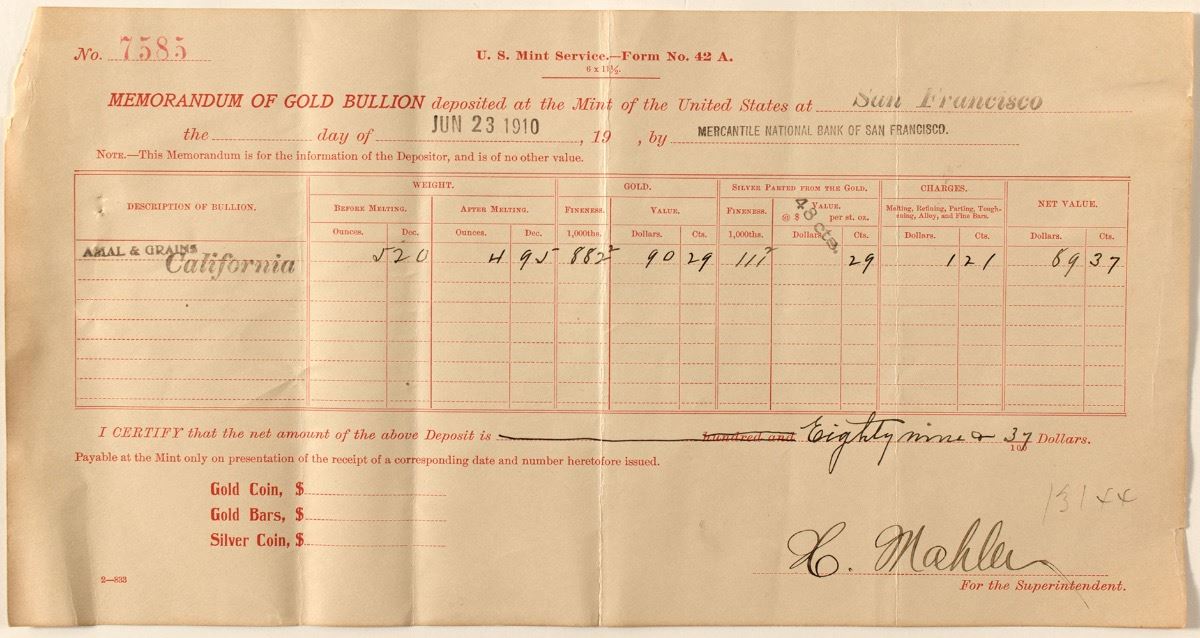 No. 7585
U. S. Mint Service.—Form No. 42 A.
6 x 11½.
MEMORANDUM OF GOLD BULLION deposited at the Mint of the United States at San Francisco
the day of JUN 23 1910, 19 , by MERCANTILE NATIONAL BANK OF SAN FRANCISCO.
NOTE.—This Memorandum is for the information of the Depositor, and is of no other value.
DESCRIPTION OF BULLION. WEIGHT. GOLD. SILVER PARTED FROM THE GOLD. CHARGES. NET VALUE.
BEFORE MELTING. AFTER MELTING. FINENESS. VALUE. FINENESS. VALUE. @ $ 48 cts. per st. oz. Melting, Refining, Parting, Toughening, Alloy, and Fine Bars.
Ounces. Dec. Ounces. Dec. 1,000ths. Dollars. Cts. 1,000ths. Dollars. Cts. Dollars. Cts. Dollars. Cts.
AMAL & GRAINS
California 5 20 4 95 882 2 90 29 111 2 29 1 21 89 37
I CERTIFY that the net amount of the above Deposit is hundred and Eighty nine & 37/100 Dollars.
Payable at the Mint only on presentation of the receipt of a corresponding date and number heretofore issued.
Gold Coin, $
Gold Bars, $
Silver Coin, $
13144
X. Mahler
For the Superintendent.
2—833